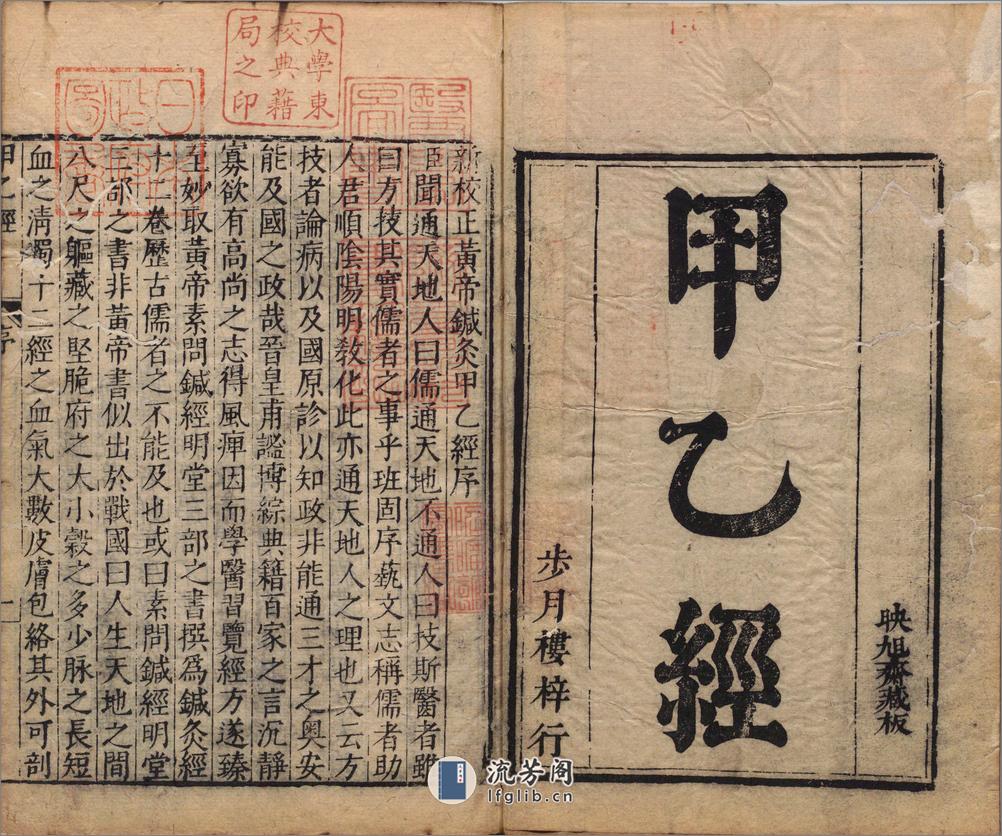 映旭齋藏板
甲乙經
步月樓梓行
大學東
校典藉
局之印
新校正黃帝鍼灸甲乙經序
臣聞通天地人曰儒通天地不通人曰技斯醫者雖
曰方技其實儒者之事乎班固序藝文志稱儒者助
人君順陰陽明敎化此亦通天地人之理也又云方
技者論病以及國原診以知政非能通三才之奥安
能及國之政哉晉皇甫謐博綜典籍百家之言沉靜
寡欲有高尚之志得風痺因而學醫習覽經方遂臻
至妙取黃帝素問鍼經明堂三部之書撰爲鍼灸經
十二卷歷古儒者之不能及也或曰素問鍼經明堂
三部之書非黃帝書似出於戰國曰人生天地之間
八尺之軀藏之堅脆府之大小穀之多少脉之長短
血之淸濁十二經之血氣大數皮膚包絡其外可剖
甲乙經
序
一
流芳阁
lfglib.cn